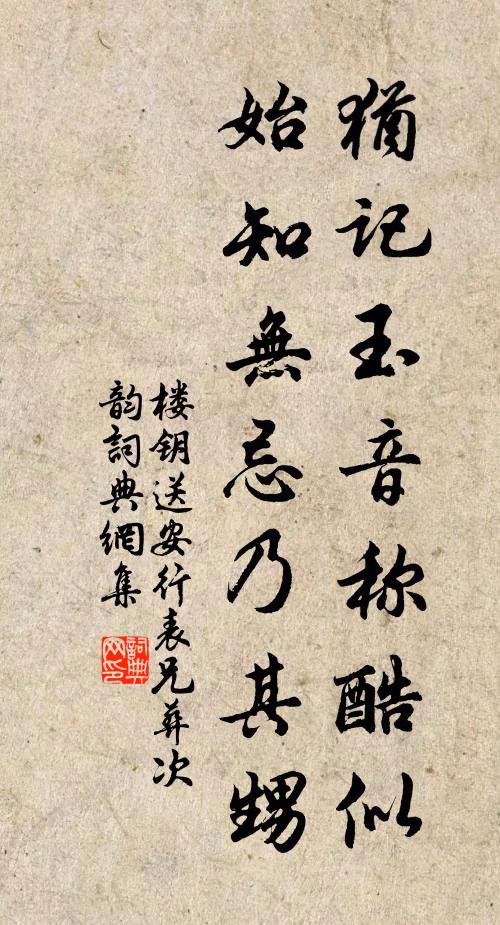 猶记玉音称酷似
始知無忌乃其甥
楼钥送安行表兄葬次
韵詞典網集
詞典网印